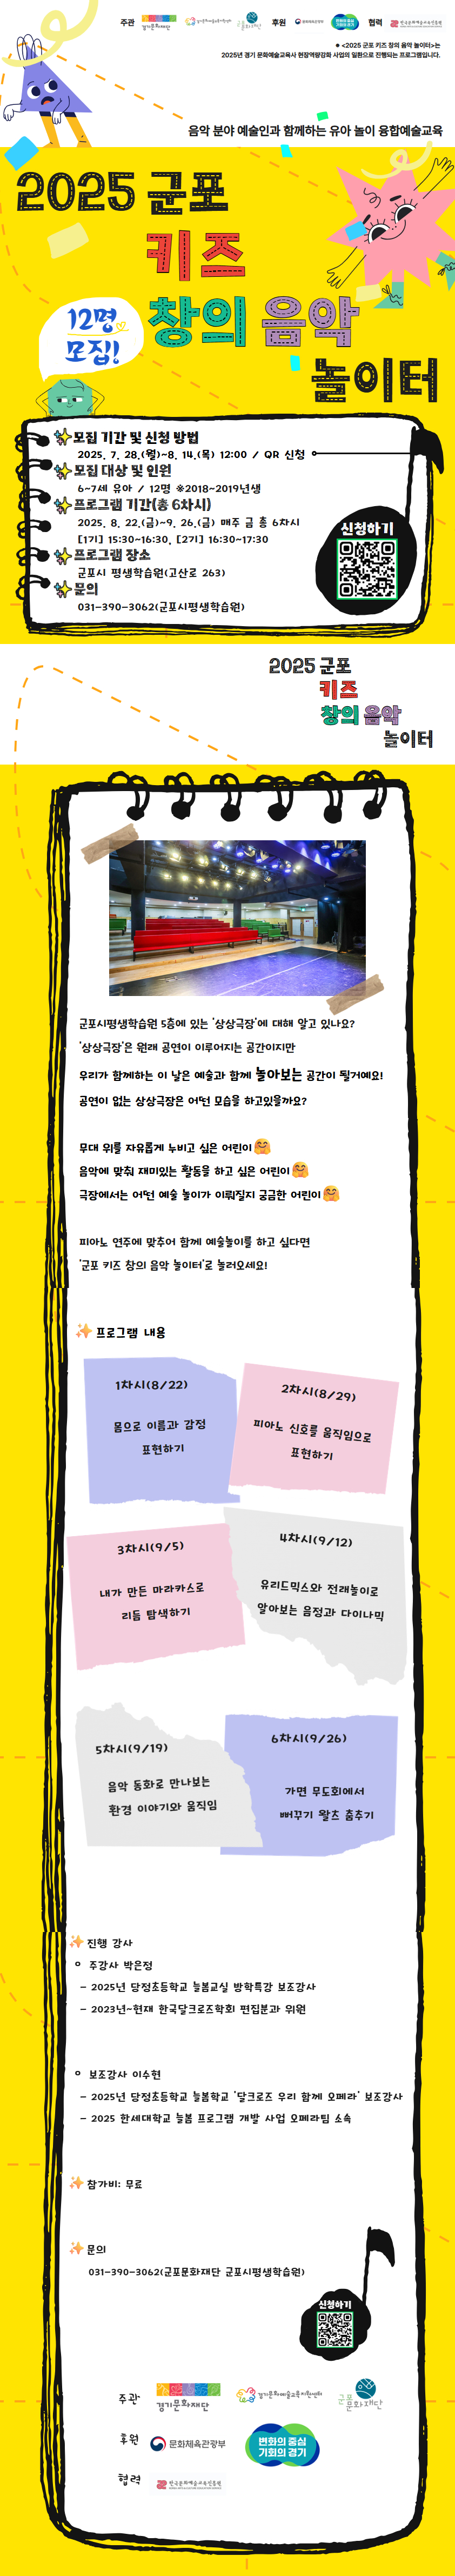 주관 경기문화재단 후원 협력
● <2025 군포 키즈 창의 음악 놀이터>는
2025년 경기 문화예술교육사 현장역량강화 사업의 일환으로 진행되는 프로그램입니다.
음악 분야 예술인과 함께하는 유아 놀이 융합예술교육
2025 군포
키즈
창의 음악
놀이터
12명
모집!
모집 기간 및 신청 방법
2025. 7. 28.(월)~8. 14.(목) 12:00 / QR 신청
모집 대상 및 인원
6~7세 유아 / 12명 ※2018~2019년생
프로그램 기간(총 6차시)
2025. 8. 22.(금)~9. 26.(금) 매주 금 총 6차시
[1기] 15:30~16:30, [2기] 16:30~17:30
프로그램 장소
군포시 평생학습원(고산로 263)
문의
031-390-3062(군포시평생학습원)
신청하기
2025 군포
키즈
창의 음악
놀이터
군포시평생학습원 5층에 있는 '상상극장'에 대해 알고 있나요?
'상상극장'은 원래 공연이 이루어지는 공간이지만
우리가 함께하는 이 날은 예술과 함께 놀아보는 공간이 될거예요!
공연이 없는 상상극장은 어떤 모습을 하고있을까요?
무대 위를 자유롭게 누비고 싶은 어린이
음악에 맞춰 재미있는 활동을 하고 싶은 어린이
극장에서는 어떤 예술 놀이가 이뤄질지 궁금한 어린이
피아노 연주에 맞추어 함께 예술놀이를 하고 싶다면
'군포 키즈 창의 음악 놀이터'로 놀러오세요!
프로그램 내용
1차시(8/22)
몸으로 이름과 감정
표현하기
2차시(8/29)
피아노 신호를 움직임으로
표현하기
3차시(9/5)
내가 만든 마라카스로
리듬 탐색하기
4차시(9/12)
유리드믹스와 전래놀이로
알아보는 음정과 다이나믹
5차시(9/19)
음악 동화로 만나보는
환경 이야기와 움직임
6차시(9/26)
가면 무도회에서
뻐꾸기 왈츠 춤추기
진행 강사
주강사 박은정
- 2025년 당정초등학교 늘봄교실 방학특강 보조강사
- 2023년~현재 한국달크로즈학회 편집분과 위원
보조강사 이수현
- 2025년 당정초등학교 늘봄학교 '달크로즈 우리 함께 오페라' 보조강사
- 2025 한세대학교 늘봄 프로그램 개발 사업 오페라팀 소속
참가비: 무료
문의
031-390-3062(군포문화재단 군포시평생학습원)
신청하기
주관 경기문화재단 경기문화예술교육지원센터 군포문화재단
후원 문화체육관광부 변화의 중심 기회의 경기
협력 한국문화예술교육진흥원